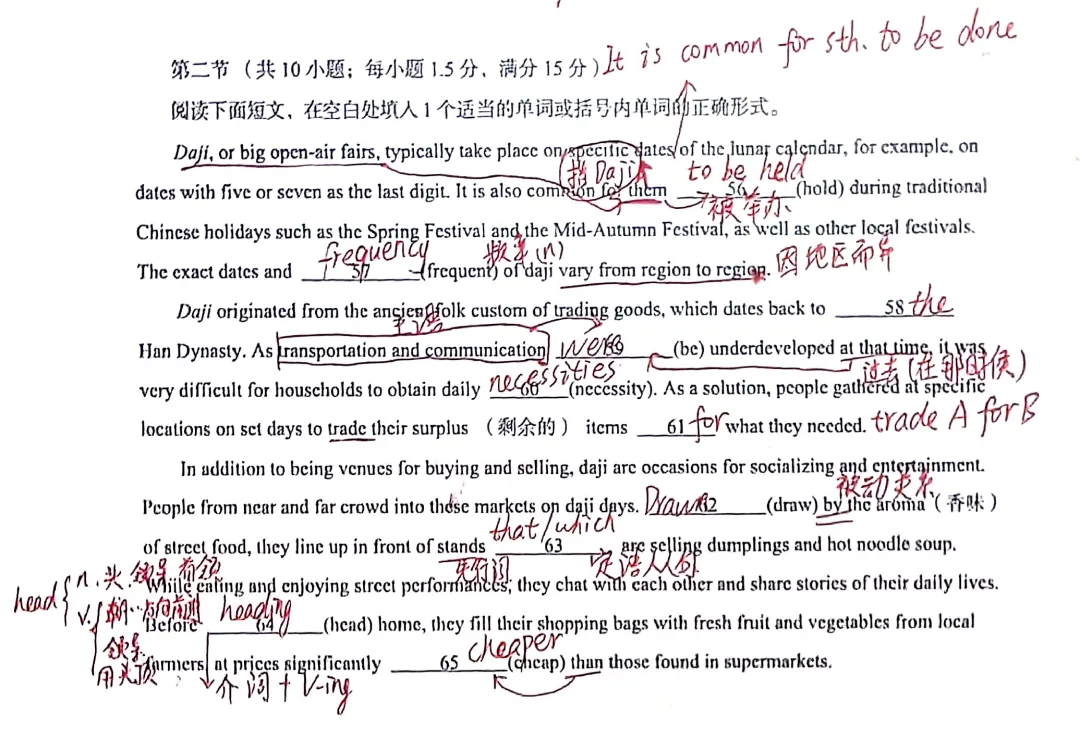 It is common for sth. to be done
第二节 (共 10 小题; 每小题 1.5 分, 满分 15 分)
阅读下面短文, 在空白处填入 1 个适当的单词或括号内单词的正确形式。
Daji, or big open-air fairs, typically take place on specific dates of the lunar calendar, for example, on
指Daji to be held
dates with five or seven as the last digit. It is also common for them 56 (hold) during traditional
被举办
Chinese holidays such as the Spring Festival and the Mid-Autumn Festival, as well as other local festivals.
frequency 频率(n)
The exact dates and 57 (frequent) of daji vary from region to region. 因地区而异
Daji originated from the ancient folk custom of trading goods, which dates back to 58 the
Han Dynasty. As transportation and communication were 59 (be) underdeveloped at that time, it was
过去 (在那时候)
necessities
very difficult for households to obtain daily 60 (necessity). As a solution, people gathered at specific
locations on set days to trade their surplus (剩余的) items 61 for what they needed. trade A for B
In addition to being venues for buying and selling, daji are occasions for socializing and entertainment.
被动关系
People from near and far crowd into these markets on daji days. Drawn 62 (draw) by the aroma (香味)
that/which
of street food, they line up in front of stands 63 are selling dumplings and hot noodle soup.
先行词 定语从句
head n. 头. 领导. 首领
While eating and enjoying street performances, they chat with each other and share stories of their daily lives.
v. 朝…方向前进 heading
Before 64 (head) home, they fill their shopping bags with fresh fruit and vegetables from local
领导 cheaper
farmers at prices significantly 65 (cheap) than those found in supermarkets.
用头顶 介词 + V-ing